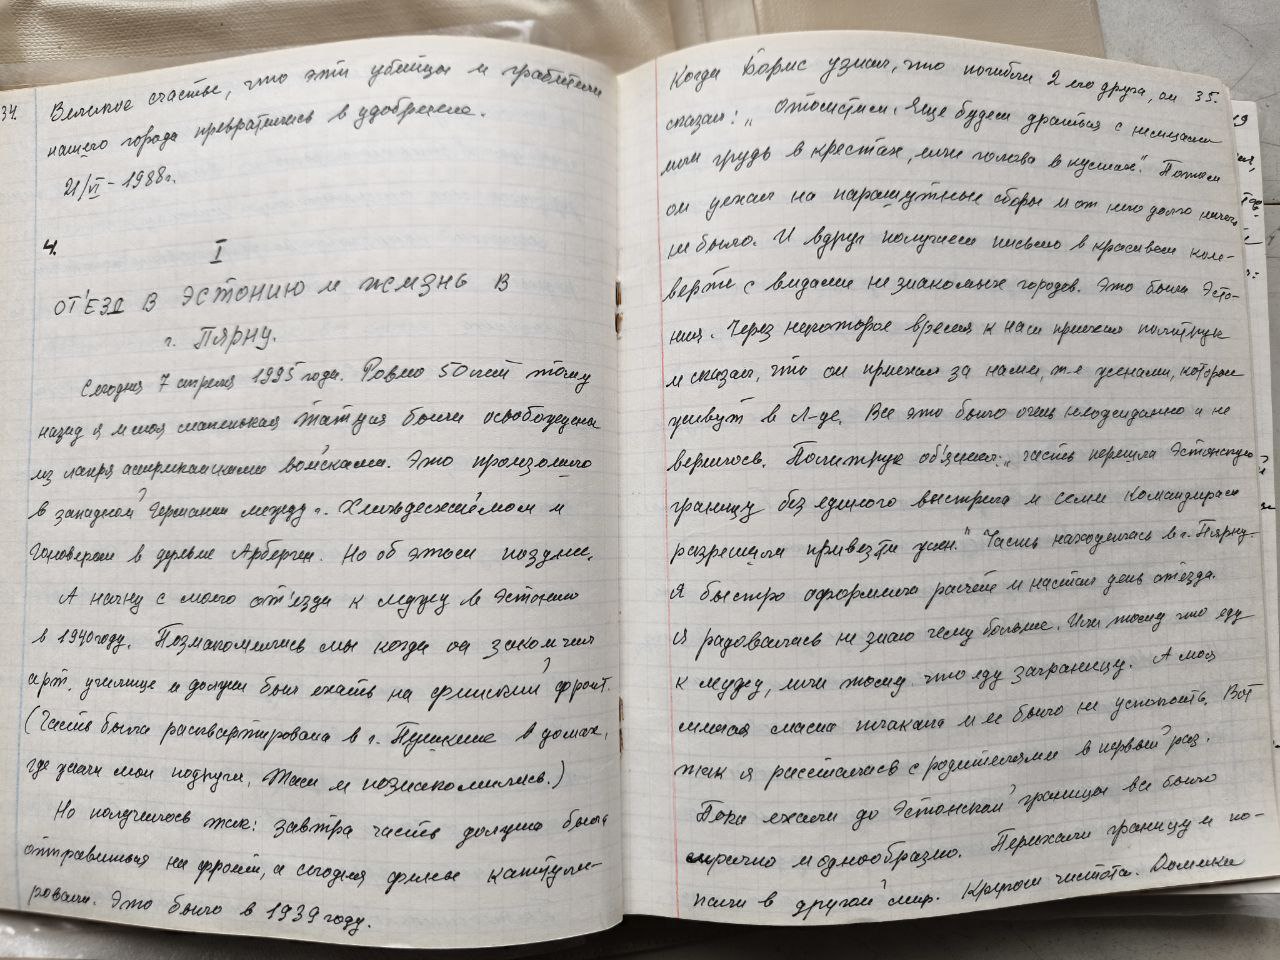 34.
Великое счастье, что эти убийцы и грабители
нашего города превратились в удобрение.
21/VI - 1988г.
4.
I
ОТ'ЕЗД В ЭСТОНИЮ и ЖИЗНЬ В
г. ПЯРНУ.
Сегодня 7 апреля 1995 года. Ровно 50 лет тому
назад я и моя маленькая Татуля были освобождены
из лагря американскими войсками. Это произошло
в западной Германии между г. Хильдесхаймом и
Гановером в деревне Арберген. Но об этом поздние.
А начну с моего от'езда к мужу в Эстонию
в 1940 году. Познакомились мы когда он закончил
арт. училище и должен был ехать на финский фронт.
(Часть была расквартирована в г. Пушкине в домах,
где жили мои подруги. Там и познакомились.)
Но получилось так: завтра часть должна была
отправиться на фронт, а сегодня финны капитули-
ровали. Это было в 1939 году.
35.
Когда Борис узнал, что погибли 2 его друга, он
сказал: „отомстим. Еще будем драться с немцами
или грудь в крестах, или голова в кустах". Потом
он уехал на парашутные сборы и от него долго ничего
не было. И вдруг получаем письмо в красивом кон-
верте с видами незнакомых городов. Это была Эсто-
ния. Через некоторое время к нам приехал политрук
и сказал, что он приехал за нами, т.е женами, которые
живут в Л-де. Все это было очень неожиданно и не
верилось. Политрук об'яснил: „часть перешла Эстонскую
границу без единого выстрела и семи командирам
разрешили привезти жен." Часть находилась в г. Пярну.
Я быстро оформила расчёт и настал день от'езда.
Я радовалась не знаю чему больше. Или тому что еду
к мужу, или тому что еду заграницу. А моя
милая мама плакала и ее было не успокоить. Вот
так я рассталась с родителями в первый раз.
Пока ехали до Эстонской границы все было
мрачно и однообразно. Переехали границу и по-
пали в другой мир. Кругом чистота. Домики